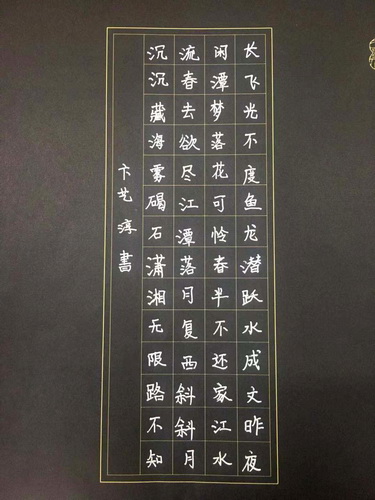 长飞光不度鱼龙潜跃水成文昨夜
闲潭梦落花可怜春半不还家江水
流春去欲尽江潭落月复西斜斜月
沉沉藏海雾碣石潇湘无限路不知
卞艺淳書